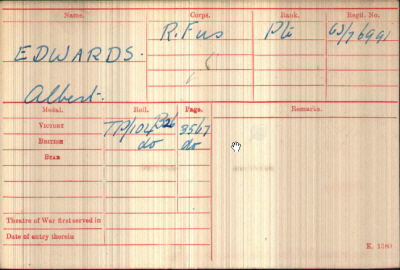 Name. Corps. Rank. Regtl. No.
EDWARDS. R. Fus Pte GS/76991
Albert.
Medal. Roll. Page. Remarks.
Victory TP/104 B26 3567
British do do
Star
Theatre of War first served in
Date of entry therein
K. 1380